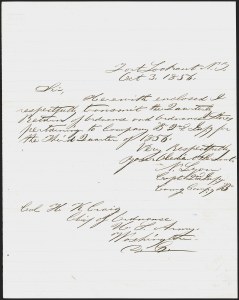 Fort Lookout N.T.
Oct 3. 1856.
Sir,
Herewith enclosed I
respectfully transmit the Quarterly
Return of Ordnance and Ordnance Stores
pertaining to Company B 2d Infy for
the Third Quarter of 1856.
Very Respectfully
Your Obdt Servt.
N. Lyon
Capt 2d Infy
Comg Compy B
Col. H. K. Craig
Chief of Ordnance
U. S. Army
Washington
D. C.